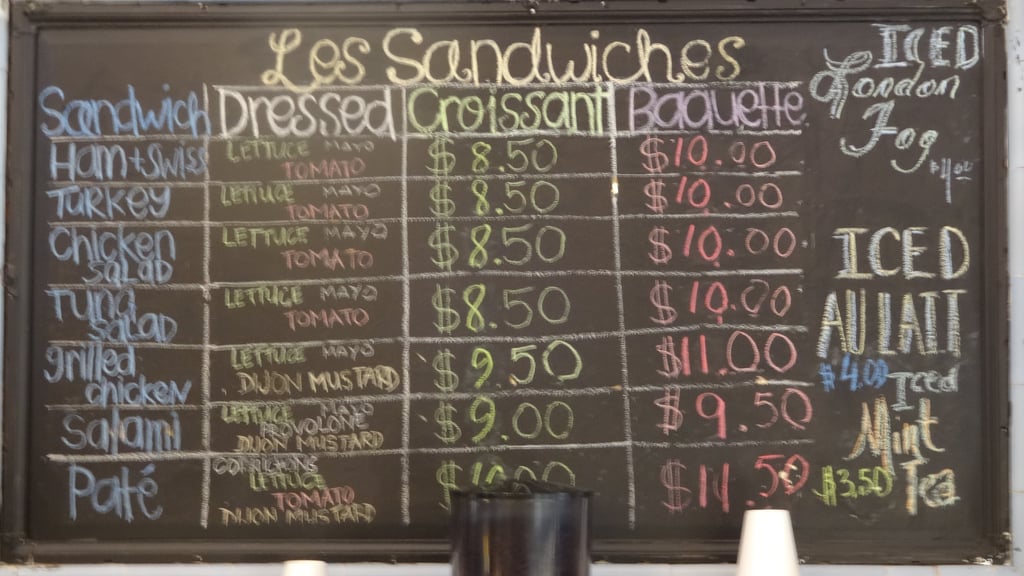 Les Sandwiches
Sandwich Dressed Croissant Baquette
Ham + Swiss LETTUCE MAYO TOMATO $8.50 $10.00
TURKEY LETTUCE MAYO TOMATO $8.50 $10.00
Chicken SALAD LETTUCE MAYO TOMATO $8.50 $10.00
Tuna SALAD LETTUCE MAYO TOMATO $8.50 $10.00
grilled chicken LETTUCE MAYO DIJON MUSTARD $9.50 $11.00
Salami LETTUCE MAYO PROVOLONE DIJON MUSTARD $9.00 $9.50
Paté LETTUCE TOMATO DIJON MUSTARD
ICED
London
Fog
$4.00
ICED
AU LAIT
$4.00
Iced
Mint
Tea
$3.50